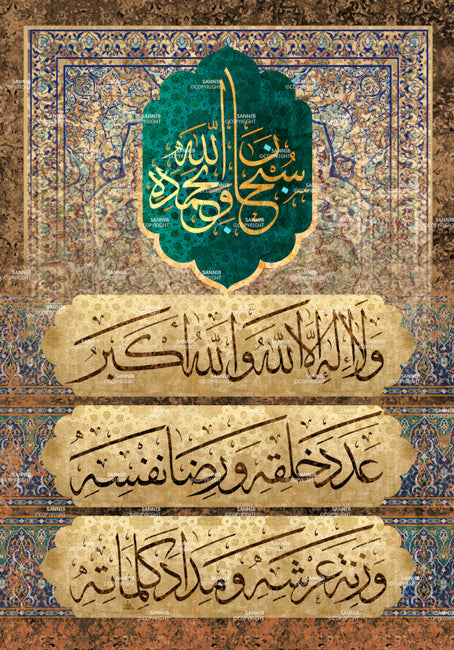 سبحان الله وبحمده
ولا إله إلا الله والله أكبر
عدد خلقه ورضا نفسه
وزنة عرشه ومداد كلماته
SANNIB
©COPYRIGHT